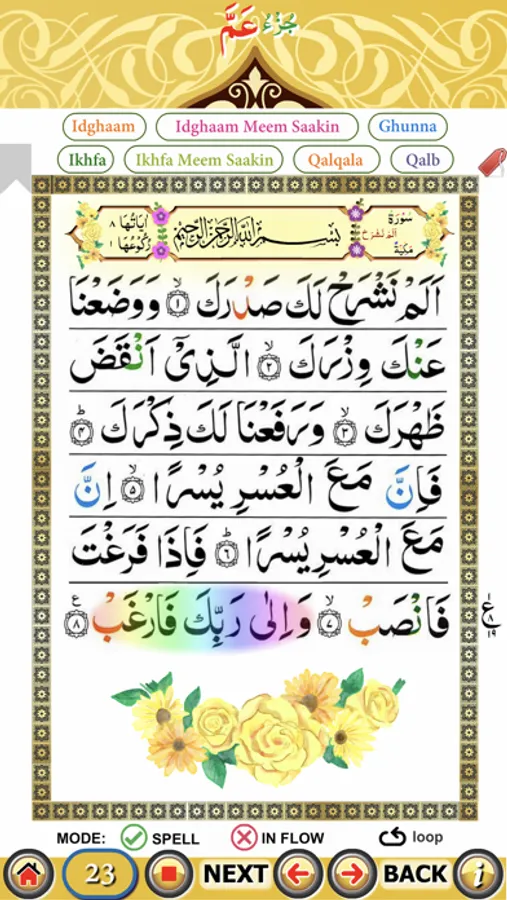 جُزْءُ عَمَّ
Idghaam Idghaam Meem Saakin Ghunna
Ikhfa Ikhfa Meem Saakin Qalqala Qalb
سُوْرَةُ اَلَمْ نَشْرَحْ مَكِّيَّةٌ
بِسْمِ اللّٰهِ الرَّحْمٰنِ الرَّحِيْمِ
اٰيَاتُهَا ٨ رُكُوْعُهَا ١
اَلَمْ نَشْرَحْ لَكَ صَدْرَكَ ۙ﴿١﴾ وَوَضَعْنَا
عَنْكَ وِزْرَكَ ۙ﴿٢﴾ الَّذِىْٓ اَنْقَضَ
ظَهْرَكَ ۙ﴿٣﴾ وَرَفَعْنَا لَكَ ذِكْرَكَ ؕ﴿٤﴾
فَاِنَّ مَعَ الْعُسْرِ يُسْرًا ۙ﴿٥﴾ اِنَّ
مَعَ الْعُسْرِ يُسْرًا ؕ﴿٦﴾ فَاِذَا فَرَغْتَ
فَانْصَبْ ۙ﴿٧﴾ وَاِلٰى رَبِّكَ فَارْغَبْ ﴿٨﴾ ع
١ ع ٨ ١٩
MODE: SPELL IN FLOW loop
23 NEXT BACK i